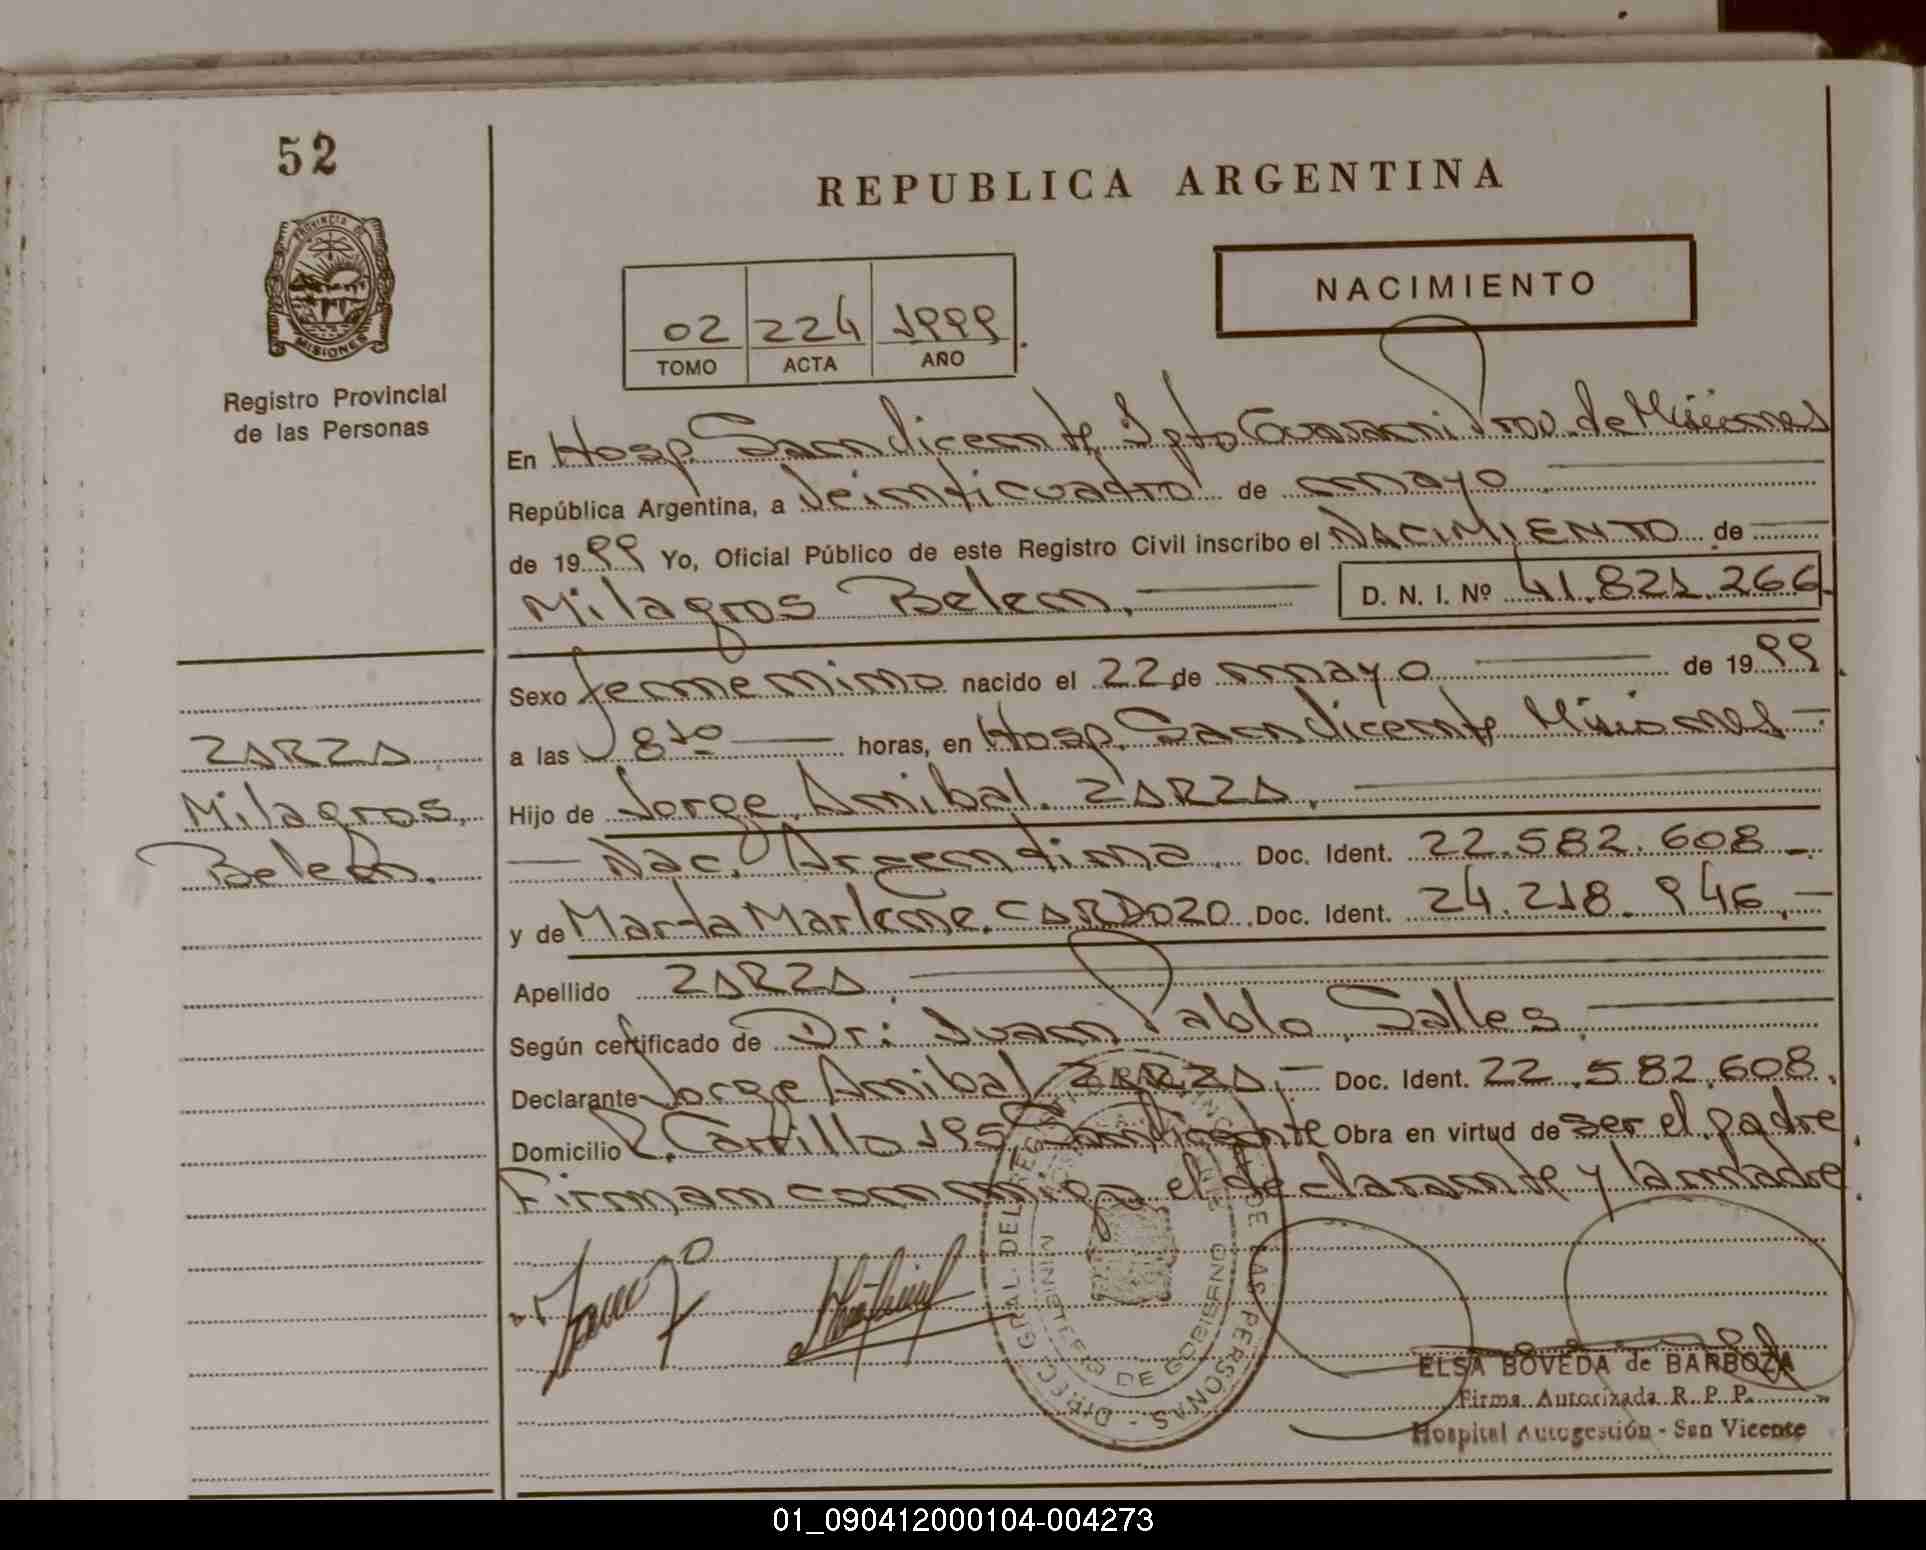 52
REPUBLICA ARGENTINA
PROVINCIA DE
MISIONES
Registro Provincial
de las Personas
NACIMIENTO
02 224 1999
TOMO ACTA AÑO
En Hosp. San Vicente Dpto Guarani Prov. de Misiones
República Argentina, a Veinticuatro de mayo
de 1999 Yo, Oficial Público de este Registro Civil inscribo el NACIMIENTO de
Milagros Belen, D. N. I. Nº 41.821.266
Sexo femenino nacido el 22 de mayo de 1999
a las 8 horas, en Hosp. San Vicente Misiones
Hijo de Jorge Anibal ZARZA,
Nac. Argentina Doc. Ident. 22.582.608
y de Marta Marlene CARDOZO Doc. Ident. 24.218.946
Apellido ZARZA
Según certificado de Dr: Juan Pablo Salles
Declarante Jorge Anibal ZARZA Doc. Ident. 22.582.608
Domicilio R. Carrillo 195 San Vicente Obra en virtud de ser el padre
Firman conmigo el declarante y la madre
ZARZA
Milagros,
Belen.
DIRECC. GRAL. DEL REGISTRO PROVINCIAL DE LAS PERSONAS
MINISTERIO DE GOBIERNO
ELSA BOVEDA de BARBOZA
Firma Autorizada R. P. P.
Hospital Autogestión - San Vicente
01_090412000104-004273